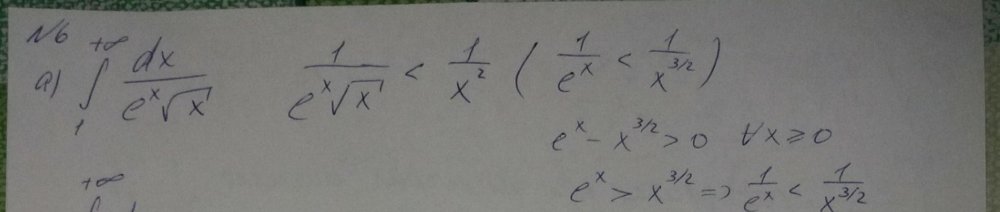 №6
a) ∫₁^{+∞} dx / (e^x √x)   1 / (e^x √x) < 1 / x^2 ( 1 / e^x < 1 / x^{3/2} )
e^x - x^{3/2} > 0 ∀x ≥ 0
+∞
e^x > x^{3/2} => 1 / e^x < 1 / x^{3/2}